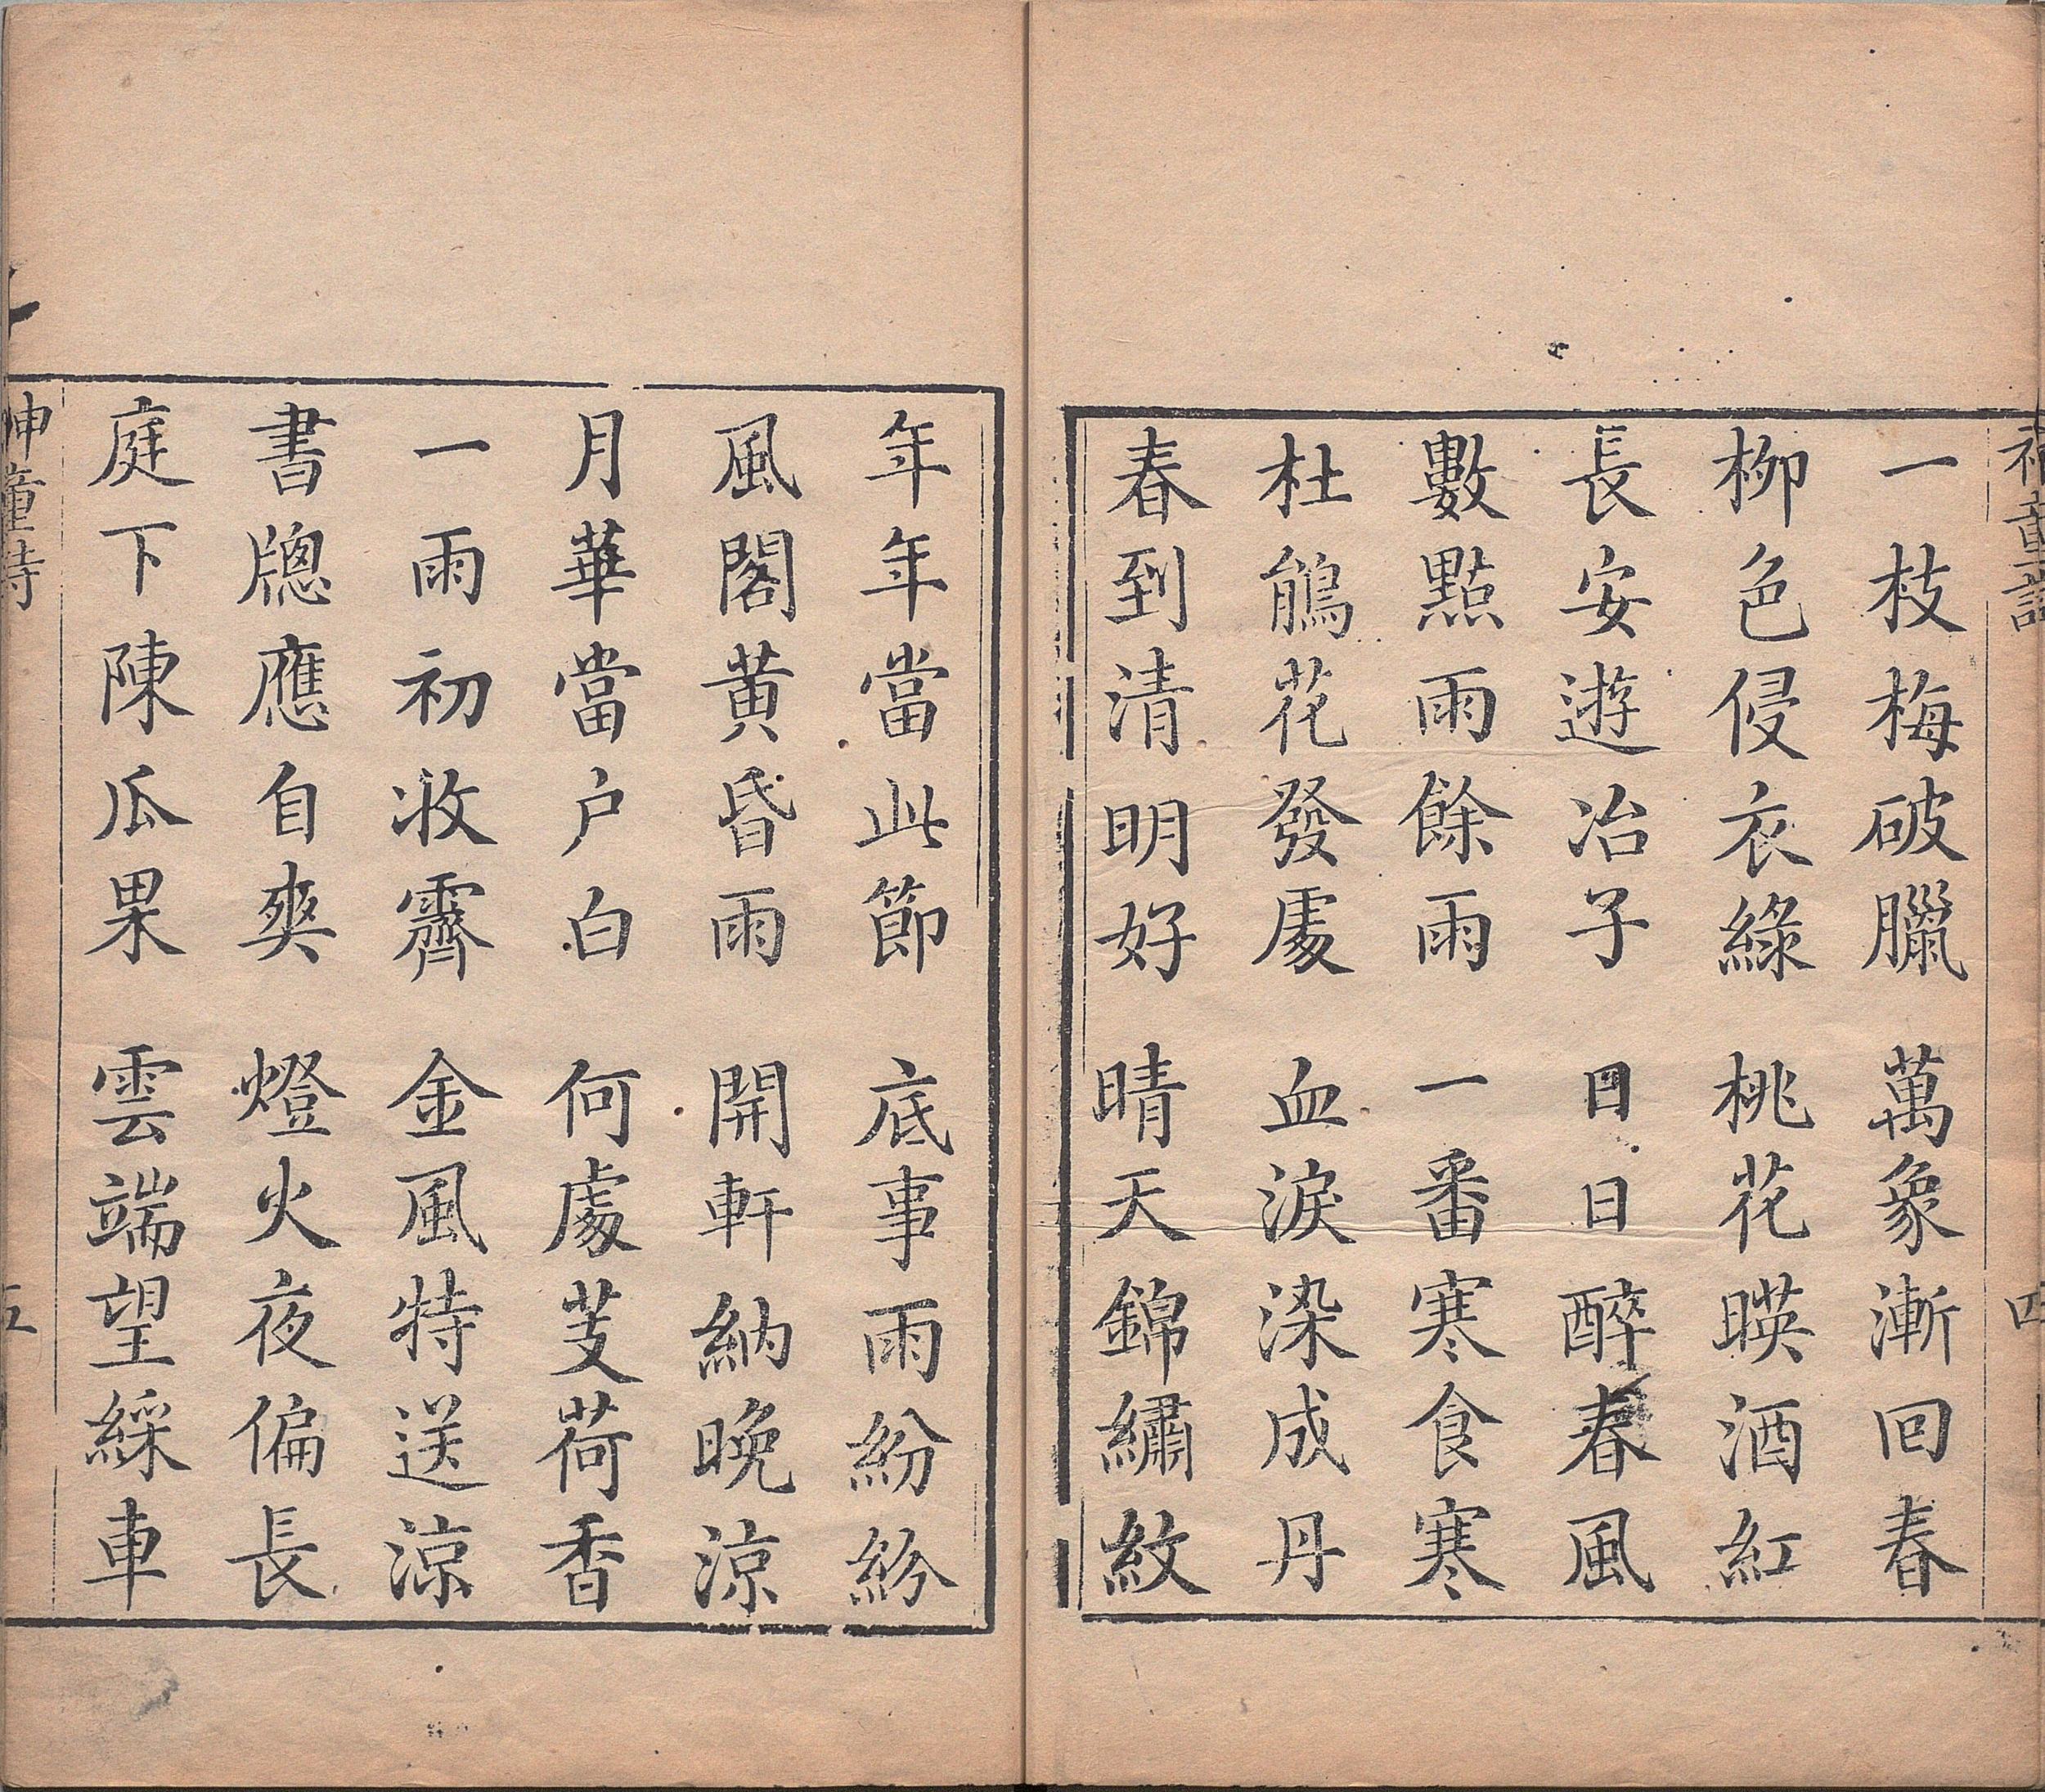 神童詩
四
一枝梅破臘 萬象漸回春
柳色侵衣綠 桃花暎酒紅
長安遊冶子 日日醉春風
數點雨餘雨 一番寒食寒
杜鵑花發處 血淚染成丹
春到清明好 晴天錦繡紋
年年當此節 底事雨紛紛
風閣黃昏雨 開軒納晚涼
月華當户白 何處芰荷香
一雨初收霽 金風特送涼
書牕應自爽 燈火夜偏長
庭下陳瓜果 雲端望綵車
神童詩
五